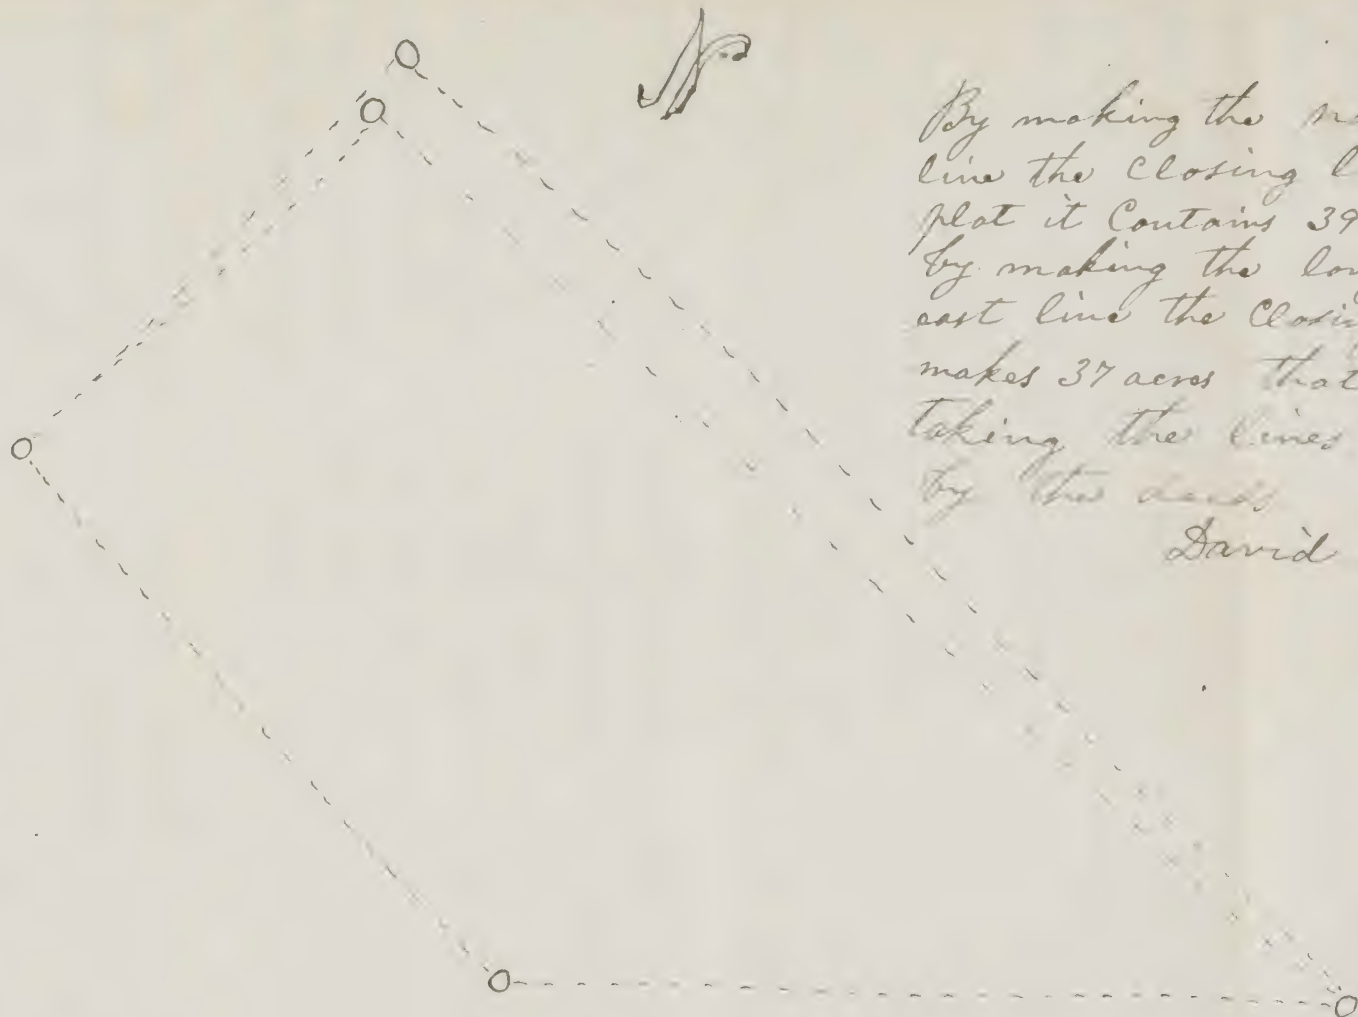 N
By making the
line the Closing
plot it Contains 39
by making the
east line the
makes 37 acres that
taking the lines
by the deeds
David